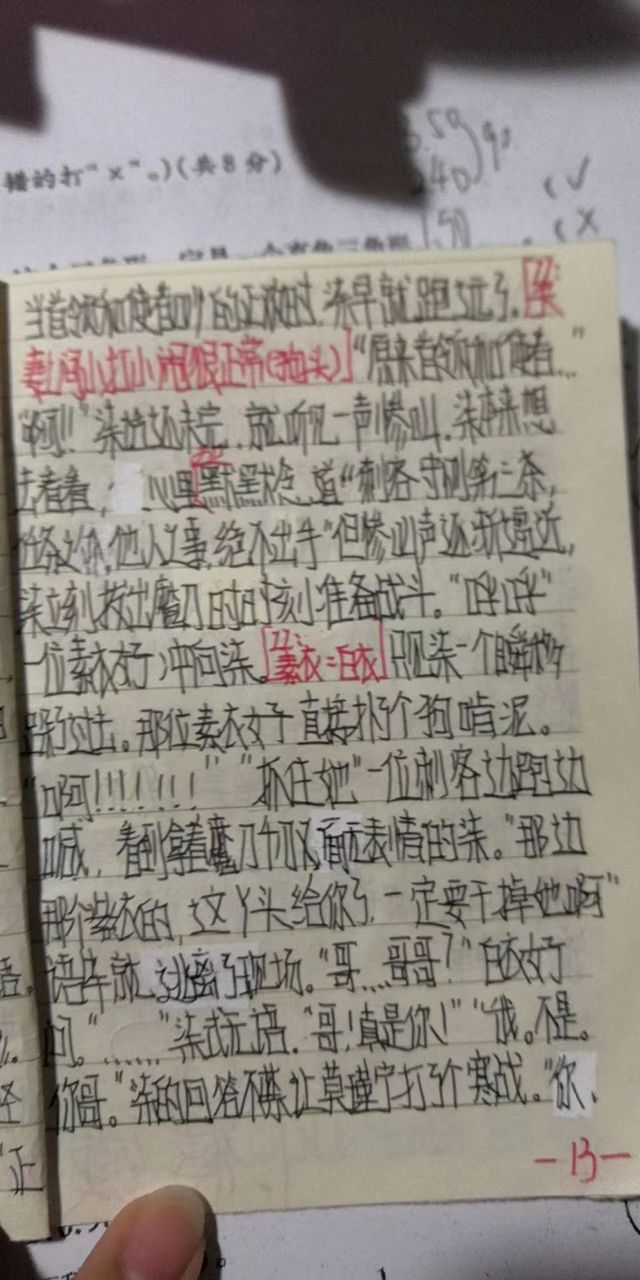 错的打"×"。)(共8分)
当首领和使者吵的正激时,柒早就跑远了。[??:柒
妻:闯小打小闹很正常(抱头)]"原来首领和使者..."
"啊!!"柒话还未完,就听见一声惨叫,柒本来想
去看看, 心里默默念道"刺客守则第三条,
任务以外,他人之事,绝不出手"但惨叫声逐渐逼近,
柒立刻拔出魔刀时时刻刻准备战斗。"呼呼"
一位素衣女子冲向柒。[??:素衣=白衣]只见柒一个瞬移
躲过去。那位素衣女子直接扑了个狗啃泥。
"啊!!!!!!!" "抓住她"一位刺客边跑边
喊,看到拿着魔刀千刃,面无表情的柒。"那边
那个紫衣的,这丫头给你了,一定要干掉她啊"
语毕就逃离了现场。"哥....哥哥?"白衣女子
问。"......"柒或无语。"哥!真是你!""我。不是。
你哥。"柒的回答不禁让莫瑾宁打了个寒战。"你、
-13-
正